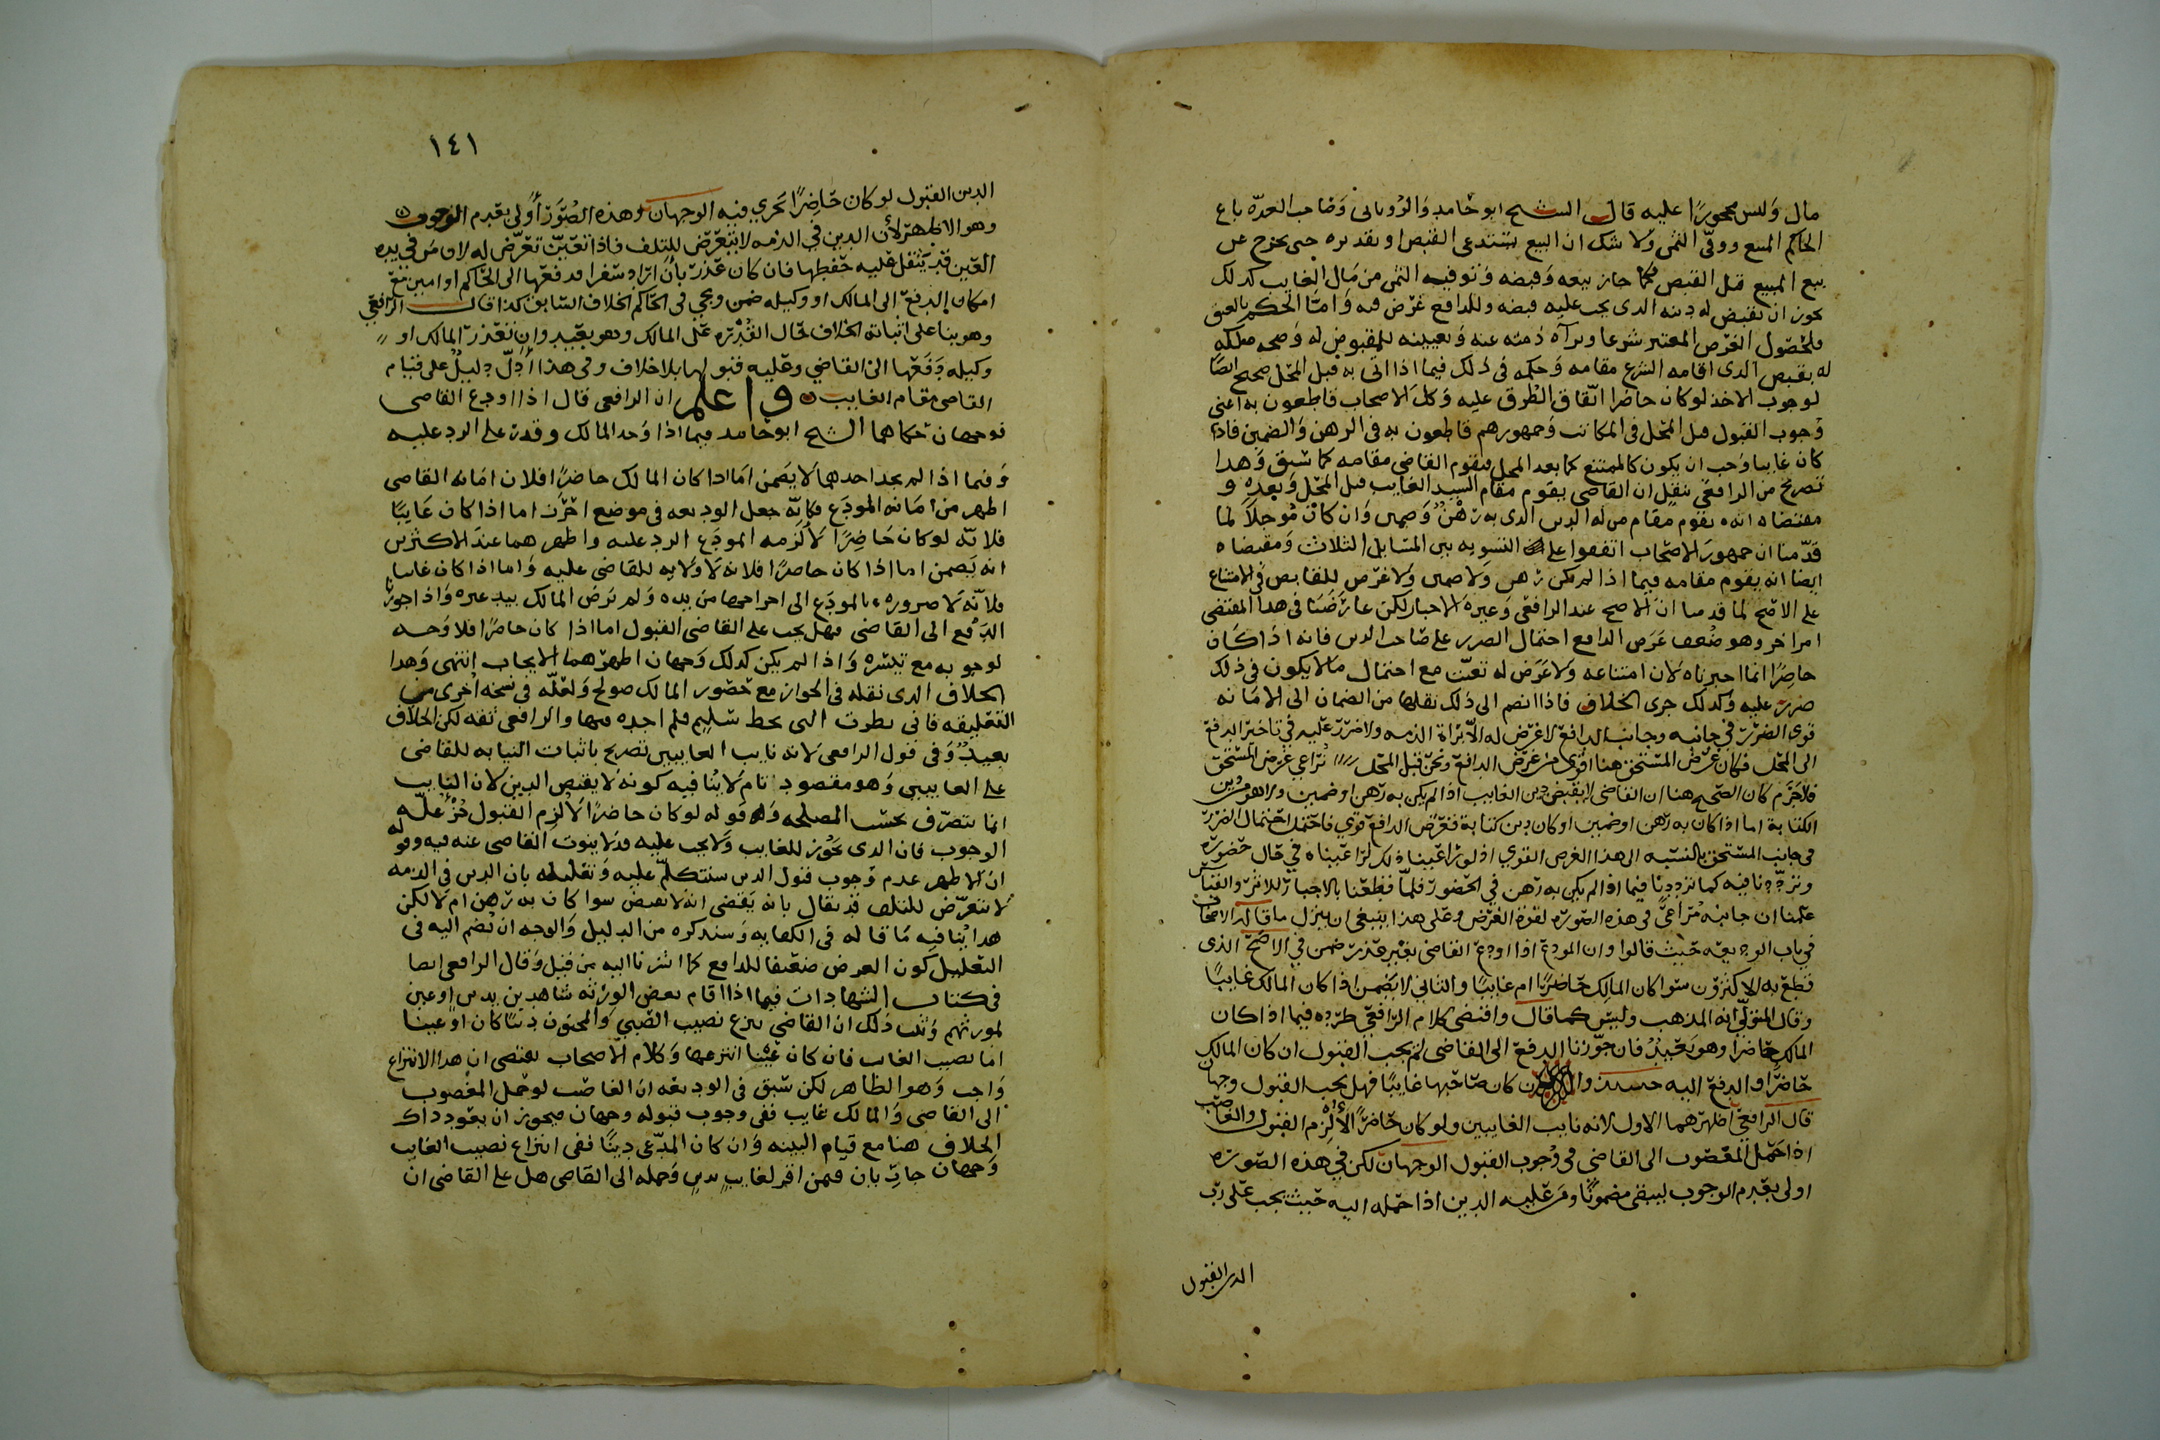 مال وليس محجورا عليه قال الشيخ ابو حامد والروياني وصاحب العدة باع
الحاكم المبيع ووفى الثمن ولا شك ان البيع يستدعي القبض او تقديره حتى يخرج عن
بيع المبيع قبل القبض فكما جاز بيعه وقبضه وتوفيه الثمن من مال الغايب كذلك
يجوز ان يقبض له دينه الذي يجب عليه قبضه وللدافع غرض فيه واما الحكم بالعتق
فلحصول الغرض المعتبر شرعا وبرآة ذمته عنه وتعيينه للمقبوض له وصحه ملكه
له بقبض الذي اقامه الشرع مقامه وحكمه في ذلك فيما اذا اتى به قبل المحل صحيح ايضا
لوجوب الاخذ لو كان حاضرا اتفاق الطرق عليه وكل الاصحاب قاطعون به اعني
وجوب القبول قبل المحل في المكاتب وجمهورهم قاطعون به في الرهن والضمين فاذا
كان غايبا وجب ان يكون كالممتنع كما بعد المحل فيقوم القاضي مقامه كما سبق وهذا
تصريح من الرافعي بنقل ان القاضي يقوم مقام السيد الغايب قبل المحل وبعده و
مقتضاه انه يقوم مقام من له الدين الذي به رهن وضمين وان كان مؤجلا لما
قدمنا ان جمهور الاصحاب اتفقوا على التسويه بين المسايل الثلاث ومقتضاه
ايضا انه يقوم مقامه فيما اذا لم يكن رهن ولا ضمين ولا غرض للقابض في الامتناع
على الاصح لما قدمنا ان الاصح عند الرافعي وغيره الاجبار لكن عارضنا في هذا المقتضى
امر اخر وهو ضعف غرض الدافع احتمال الضرر على صاحب الدين فانه اذا كان
حاضرا انما اجبرناه لان امتناعه ولا غرض له تعنت مع احتمال ما لا يكون في ذلك
ضرر عليه وكذلك جرى الخلاف فاذا انضم الى ذلك نقلها من الضمان الى الامانه
قوي الضرر في جانبه وجانب الدافع لا غرض له الا براة الذمه ولا ضرر عليه في تاخير الدفع
الى المحل فكان غرض المستحق هنا اقوى من غرض الدافع ونحن قبل المحل نراعي غرض المستحق
فلا جرم كان الصحيح هنا ان القاضي لا يقبض دين الغايب اذا لم يكن به رهن او ضمين ولا هو من دين
الكتابة اما اذا كان به رهن او ضمين او كان دين كتابة فغرض الدافع قوي فاحتمل احتمال الضرر
في جانب المستحق بالنسبه الى هذا الغرض القوي اذ لو راعينا ذلك لراعيناه في حال حضوره
وترددنا فيه كما ترددنا فيما اذا لم يكن به رهن في الحضور فلما قطعنا بالاجبار للاثر والقياس
علمنا ان جانبه مراعى في هذه الصورة لقوة الغرض وعلى هذا ينبغي ان ينزل ما قاله الاصحاب
في باب الوديعه حيث قالوا وان المودع اذا اودع القاضي بغير عذر ضمن في الاصح الذي
قطع به الاكثرون سوا كان المالك حاضرا ام غايبا والثاني لا يضمن اذا كان المالك غايبا
وقال المتولي انه المذهب وليس كما قال واقتضى كلام الرافعي طرده فيما اذا كان
المالك حاضرا وهو بعيد فان جوزنا الدفع الى القاضي لم يجب القبول ان كان المالك
حاضرا والدفع اليه متيسر وان كان صاحبها غايبا فهل يجب القبول وجهان
قال الرافعي اظهرهما الاول لانه نايب الغايبين ولو كان حاضرا لالزم القبول والغاصب
اذا حمل المغصوب الى القاضي في وجوب القبول الوجهان لكن في هذه الصوره
اولى بعدم الوجوب ليبقى مضمونا ومن عليه الدين اذا حمله اليه حيث يجب على رب
الدين القبول
١٤١
الدين القبول لو كان حاضرا يجري فيه الوجهان وهذه الصور أولى بعدم الوجوب
وهو الاظهر لأن الدين في الذمه لا يتعرض للتلف فاذا تعين تعرض له لان من في يده
العين قد يثقل عليه حفظها فان كان عذر بأن اراد سفرا فدفعها الى الحاكم او امين مع
امكان الدفع الى المالك او وكيله ضمن ويجي في الحاكم الخلاف السابق كذا قال الرافعي
وهو بنا على اثباته الخلاف حال القدرة على المالك وهو بعيد وان تعذر المالك او
وكيله دفعها الى القاضي وعليه قبولها بلا خلاف وفي هذا أدل دليل على قيام
القاضي مقام الغايب واعلم ان الرافعي قال اذا اودع القاضي
فوجهان حكاهما الشيخ ابو حامد فيما اذا وجد المالك وقدر على الرد عليه
وفيما اذا لم يجد احدهما لا يضمن اما اذا كان المالك حاضرا فلان امانه القاضي
اظهر من امانه المودع فكانه جعل الوديعه في موضع احرز اما اذا كان غايبا
فلانه لو كان حاضرا لالزمه المودع الرد عليه واظهرهما عند الاكثرين
انه يضمن اما اذا كان حاضرا فلانه لا ولايه للقاضي عليه واما اذا كان غايبا
فلانه لا ضروره بالمودع الى اخراجها من يده ولم يرض المالك بيد غيره واذا جوزنا
الدفع الى القاضي فهل يجب على القاضي القبول اما اذا كان حاضرا فلا وجه
لوجوبه مع تيسره واذا لم يكن كذلك وجهان اظهرهما الايجاب انتهى وهذا
الخلاف الذي نقله في الجواز مع حضور المالك صولح ولعله في نسخه اخرى من
التعليقه فاني نظرت التي بخط سليم فلم اجده فيها والرافعي ثقه لكن الخلاف
بعيد وفي قول الرافعي لانه نايب الغايبين تصريح باثبات النيابه للقاضي
على الغايبين وهو مقصود تام لا ينافيه كونه لا يقبض الدين لان النايب
انما يتصرف بحسب المصلحه وقوله لو كان حاضرا لالزم القبول جزء علة
الوجوب فان الذي يجوز للغايب ولا يجب عليه قد لا ينوب القاضي عنه فيه وقوله
ان الاظهر عدم وجوب قبول الدين سنتكلم عليه وتعليله بان الدين في الذمه
لا يتعرض للتلف قد يقال بانه يقتضي انه لا يقبض سوا كان به رهن ام لا لكن
هذا ينافيه ما قاله في الكفايه وسنذكره من الدليل والوجه ان نضم اليه في
التعليل كون الغرض ضعيفا للدافع كما اشرنا اليه من قبل وقال الرافعي ايضا
في كتاب الشهادات فيما اذا اقام بعض الورثه شاهدين بدين او عين
لمورثهم وثبت ذلك ان القاضي ينزع نصيب الصبي والمجنون دينا كان او عينا
اما نصيب الغايب فان كان عينا انتزعها وكلام الاصحاب يقتضي ان هذا الانتزاع
واجب وهو الظاهر لكن سبق في الوديعه ان الغاصب لو حمل المغصوب
الى القاضي والمالك غايب ففي وجوب قبوله وجهان فيجوز ان يعود ذاك
الخلاف هنا مع قيام البينه وان كان المدعى دينا ففي انتزاع نصيب الغايب
وجهان جاريان فيمن اقر لغايب بدين وحمله الى القاضي هل على القاضي ان